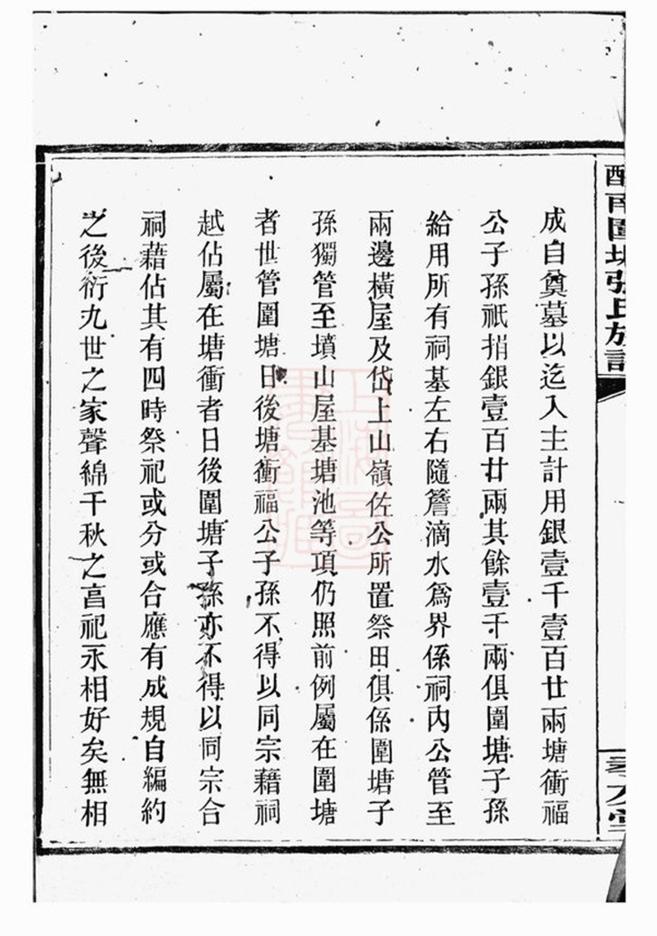 醴南圍塘張氏族譜
成自奠墓以迄入主計用銀壹千壹百廿兩塘衝福
公子孫祇捐銀壹百廿兩其餘壹千兩俱圍塘子孫
給用所有祠基左右隨簷滴水爲界係祠內公管至
兩邊橫屋及岱上山嶺佐公所置祭田俱係圍塘子
孫獨管至墳山屋基塘池等項仍照前例屬在圍塘
者世管圍塘日後塘衝福公子孫不得以同宗藉祠
越佔屬在塘衝者日後圍塘子孫亦不得以同宗合
祠藉佔其有四時祭祀或分或合應有成規自編約
之後衍九世之家聲綿千秋之享祀永相好矣無相